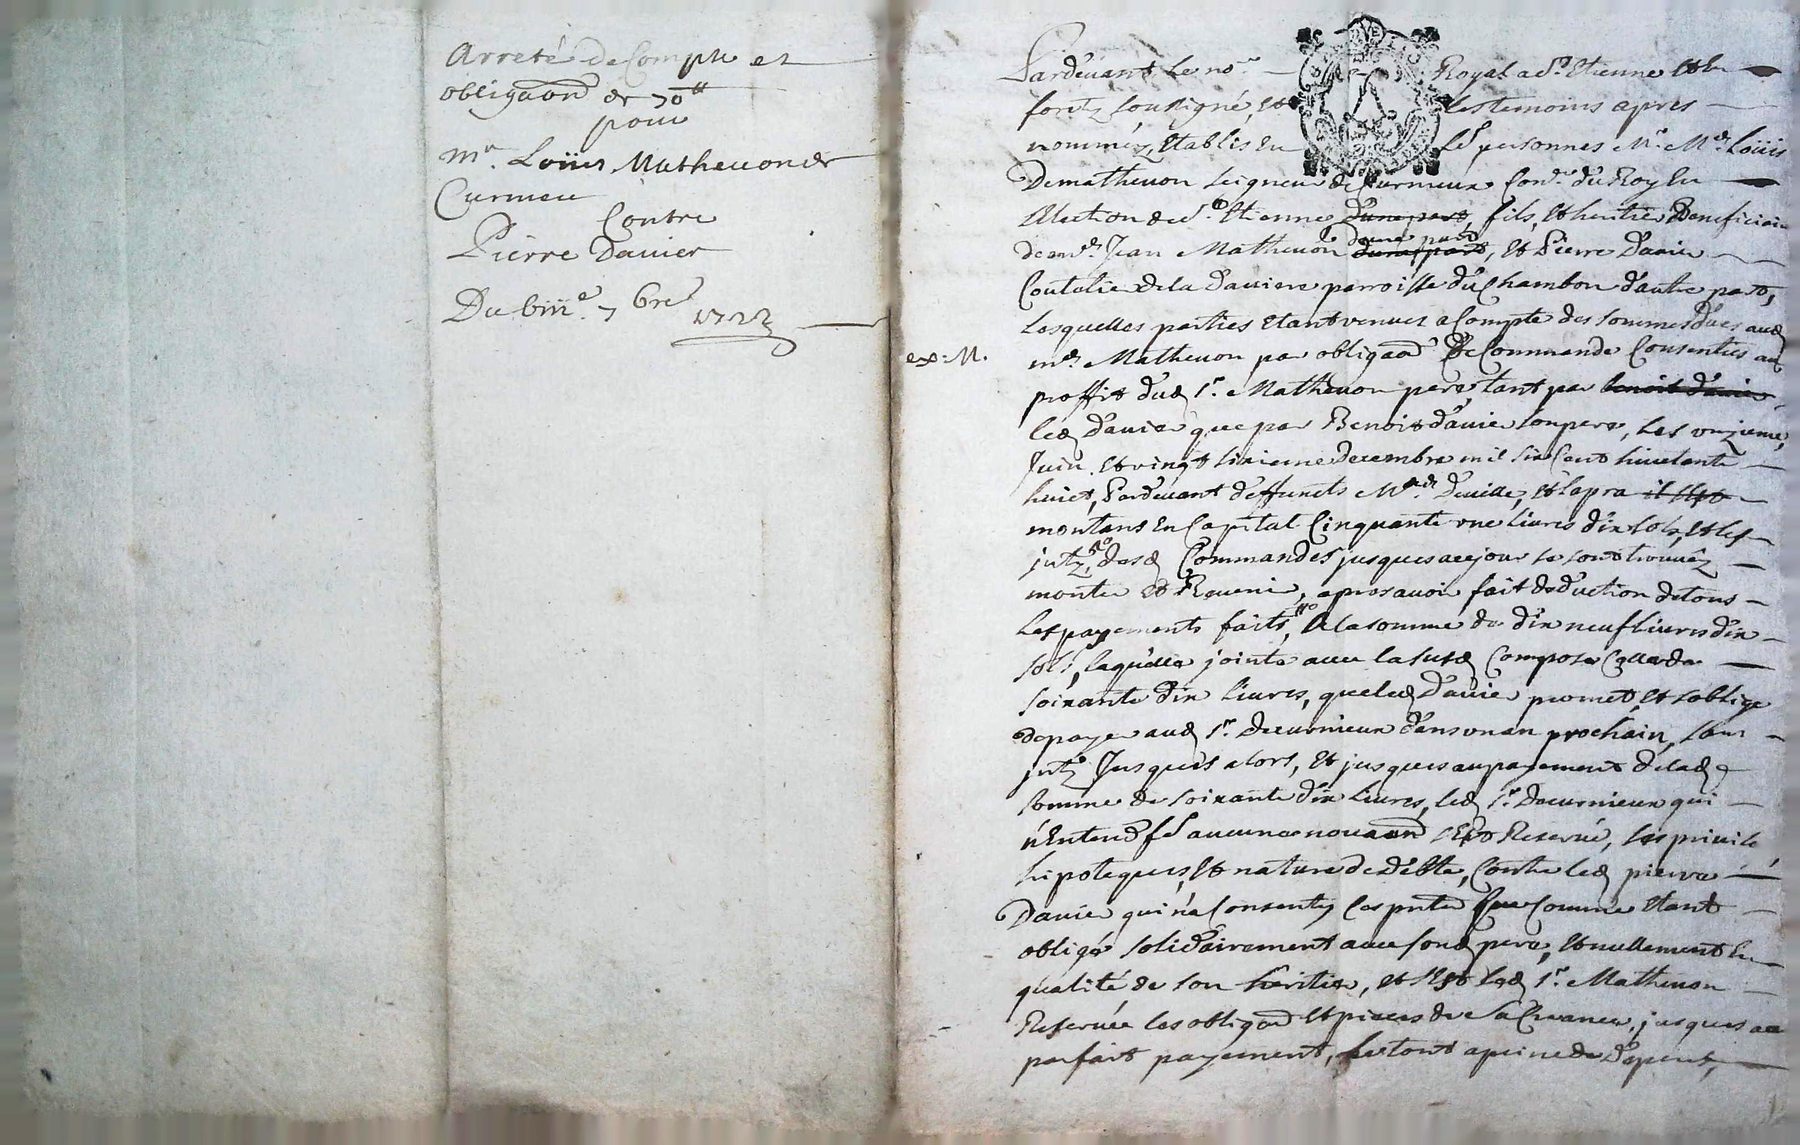 Arreté de Compte et
obliga͠on de 70 ℔
pour
Mr. Loüis Matheuon de
Curnieu
Contre
Pierre Dauier
Du Viiie. 7bre 1722
Pardeuant Le nore. Royal a St. Etienne et
forez soussigné, et les temoins apres
nomméz, Etablis En Ses personnes Mr. Me. Loüis
Dematheuon seigneur de Curnieux Coner. du Roy En
Election de St. Etienne d'une part, fils, et heritier Beneficiaire
de me. Jean Matheuon d'une part d'une part, et Pierre Dauier
Coutelier de la dauiere parroisse du Chambon d'autre part,
Lesquelles parties Etant venues a Compte des sommes dües aud
ex: M.
me. Matheuon par obligaon de Commande Consenties au
proffit dud sr. Matheuon pere, tant par benoit d'auier
led dauier que par Benoit dauier son pere, Les onzieme
Juin et vingt sixieme decembre mil six Cent huictante
huict, Pardeuant deffuncts Mes. deuille, et lapra il est
montans En Capital Cinquante vne liures dix sols, et les
jntz. desd Commandes jusques a ce jour se sont trouuéz
monter et Reuenir, apres auoir fait deduction de tous
Les payements faits, A la somme de dix neuf liures dix
sols, laquelle jointe auec la susd Compose Celle de
soixante dix liures, que led Dauier promet, et s'oblige
de payer aud sr. Decurnieux dans vn an prochain, sans
jntz Jusques alors, Et jusques au payement de lad
somme de soixante dix liures, led sr. Decurnieux qui
n'Entend fe aucune nouaon s'Est Reserué, ses priuile
hipoteques, et nature de debte, Contre led pierre
Dauier qui n'a Consenty Ces pntes que Comme Etant
obligé solidairement auec sond pere, et nullement En
qualité de son heritier, et s'Est led sr. Matheuon
Reseruée les obligaon et pieces de sa Creance, jusques au
parfait payement, Le tout a peine de depens,